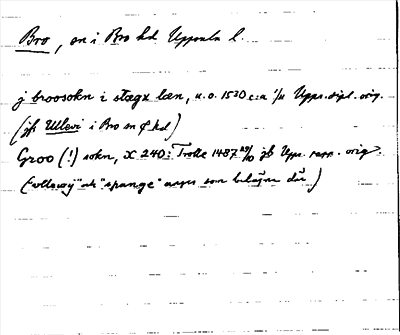 Bro, sn i Bro hd Uppsala l.
j broosokn i stægx læn, u.o. 1530 c:a 1/11 Upps. dipl. orig.
(jfr Ullevi i Bro sn o hd)
Groo (!) sokn, X 240: Trolle 1487 29/10 jb Upps. papp. orig.
("vllawij" och "spange" anges som belägna där)